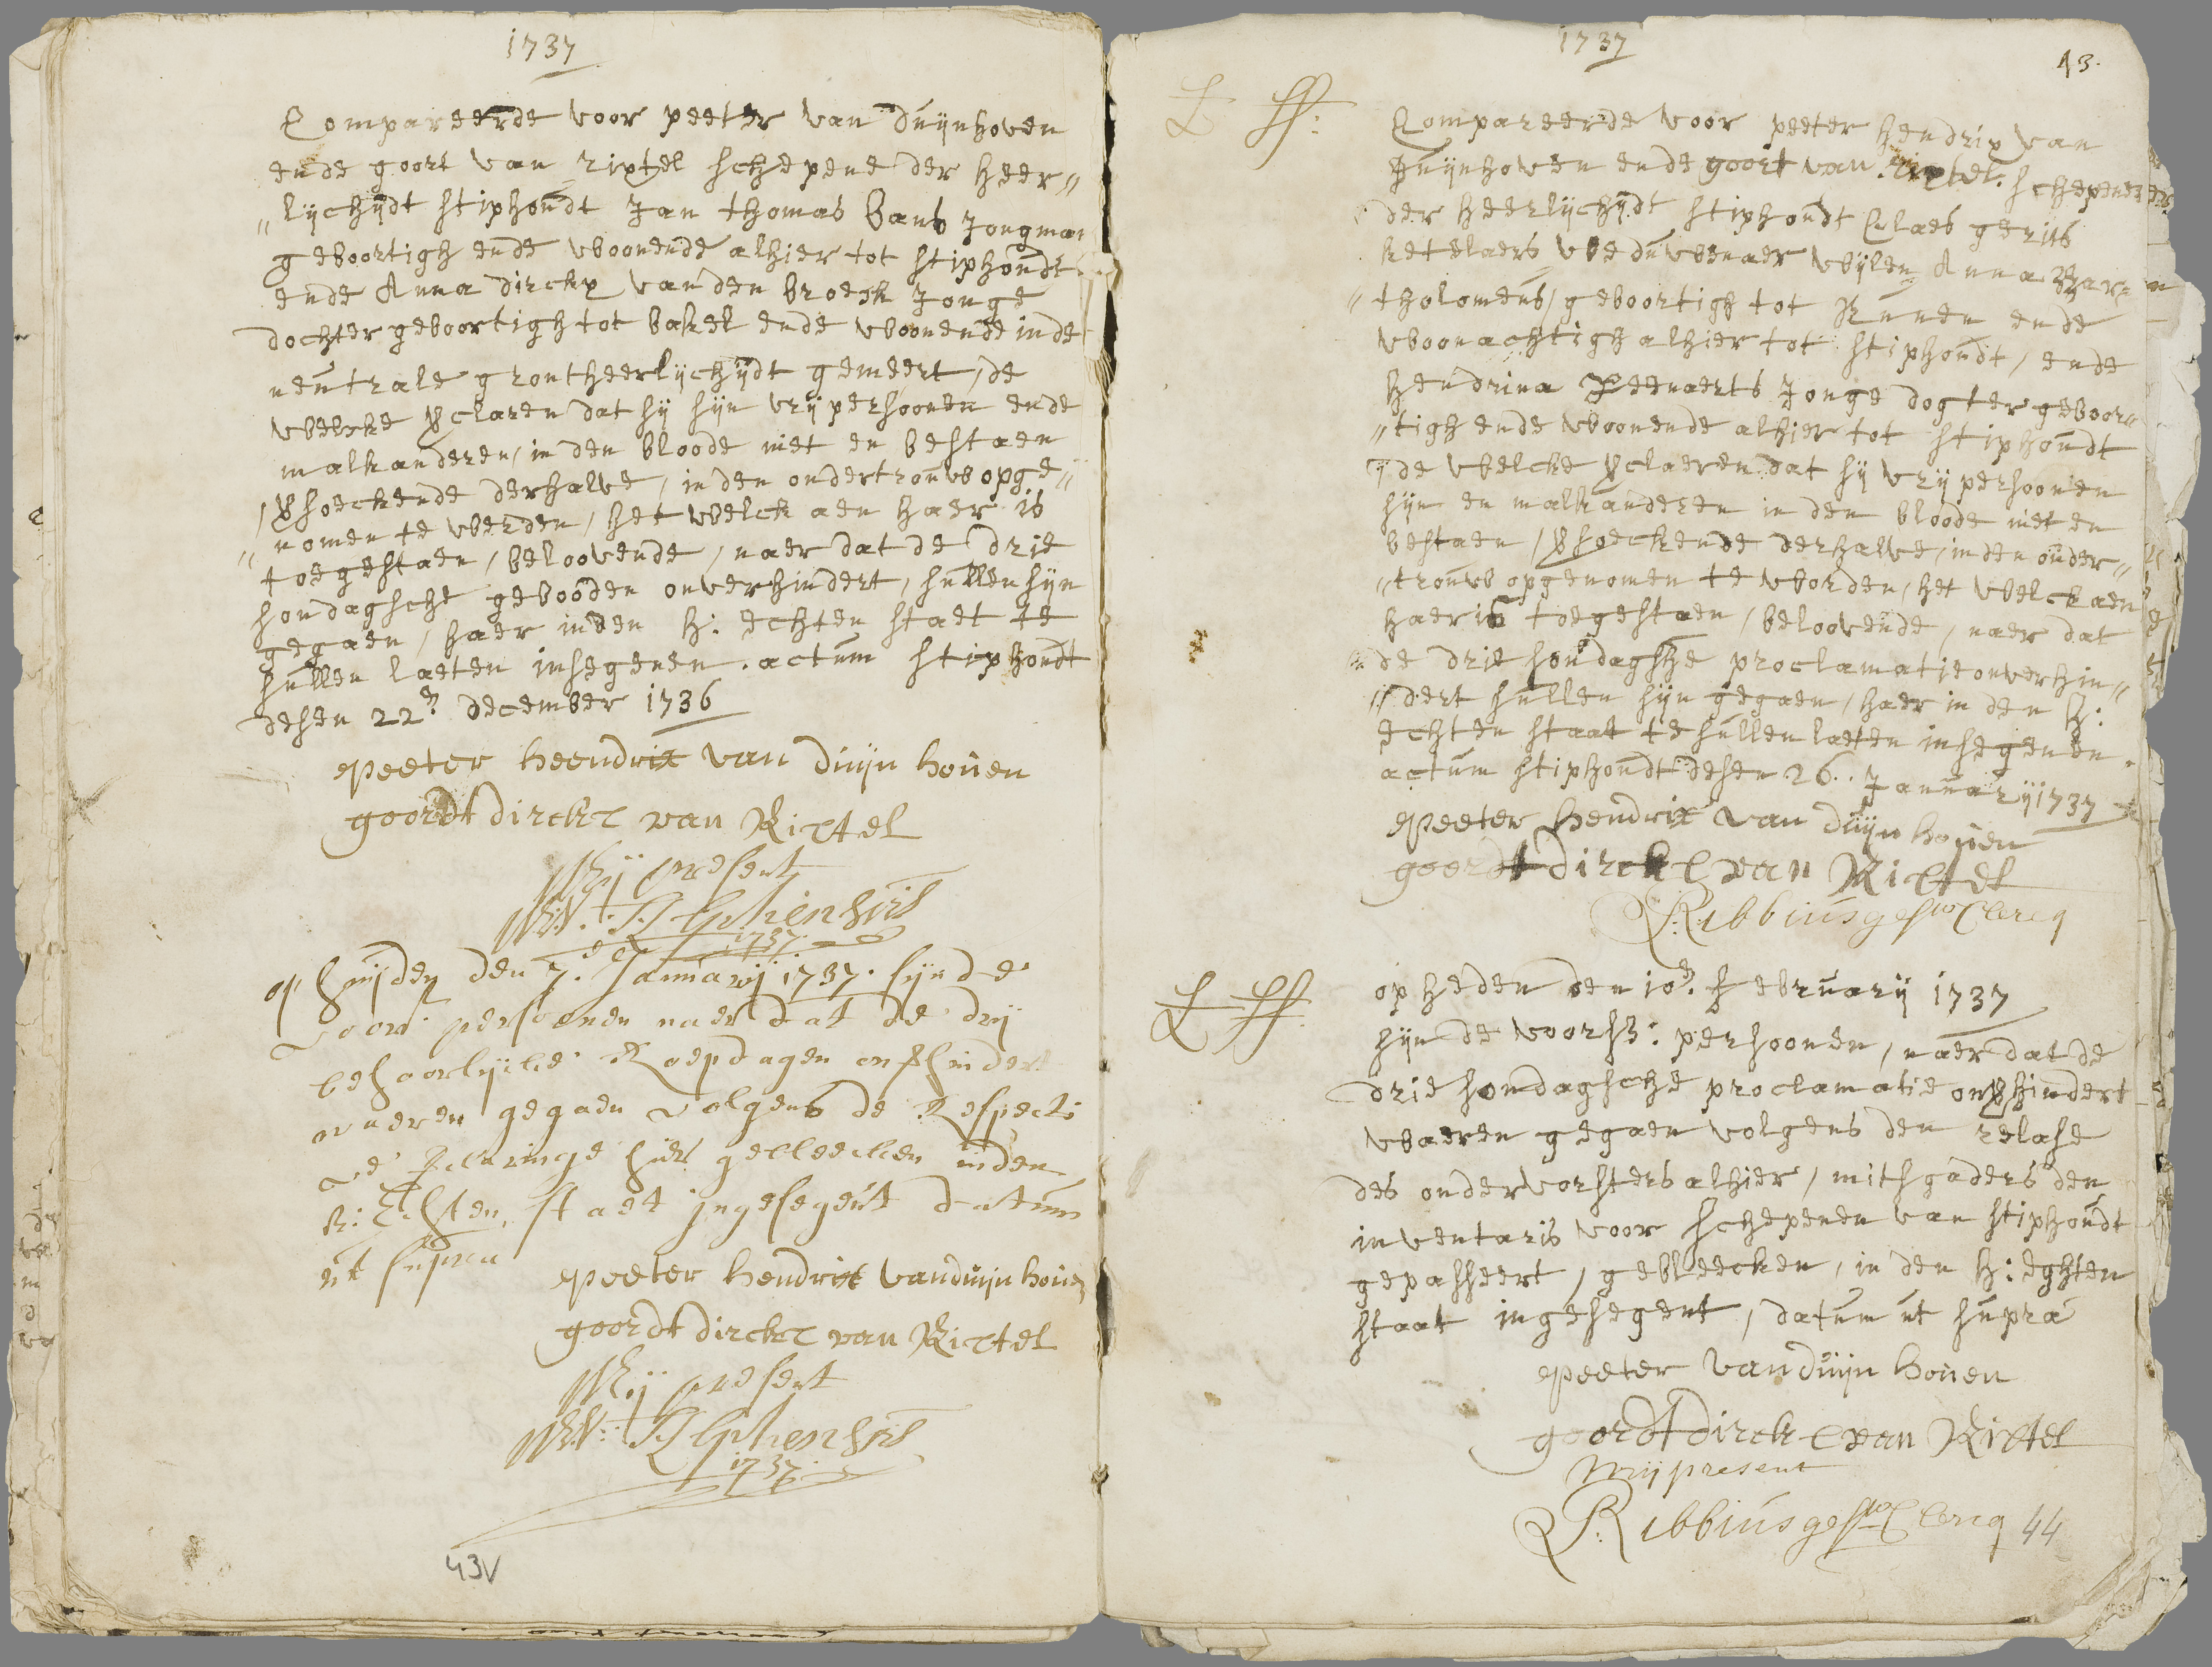 1737
Compareerde voor peeter van duijnhoven
ende goort van rixtel schepene der heer"
"lijchijdt stiphoudt Jan thomas Bans Jongman
geboortigh ende woonende alhier tot stiphoudt
ende Anna dirckx van den broeck Jonge
dochter geboortigh tot bakel ende woonende inde
neutrale grontheerlijchijdt gemeert, de
welcke vclaren dat sij sijn vrij persoonen ende
malkanderen, in den bloode niet en bestaen
, vsoeckende derhalve, in den ondertrouw opge"
"nomen te werden, het welck aen haer is
toegestaen, beloovende, naer dat de drie
sondaghsche gebooden onverhindert, sullen sijn
gegaen, haer in den H: echten staet te
sullen laeten insegenen. actum stiphoudt
desen 22e december 1736
peeter heendrix van duijn hoúen
goordt dirckx van Rixtel
Mij present
W:V: Alphen Secrs
1737.
op huijden den 7.e Januarij 1737. sijn de
voors. persoonen naer dat de drij
behoorlijcke Roepdagen onvhindert
waeren gegaen volgens de Respecti
ve Relaringe hier gebleecken in den
H: Echten, staet ingesegent datum
ut supra
peeter hendrix van duijn houen
goordt dirckx van Rixtel
Mij present
W:V: Alphen Secrs
1737.
43V
1737
43.
Compareerde voor peeter hendrix van
duijnhoven ende goort van rixtel. schepenen
der heerlijchijdt stiphoudt Claes gerits
ketelaers weduwenaer wijlen Anna Bar"
"tholomeus, geboortigh tot Nunen ende
woonachtigh alhier tot stiphoudt, ende
Hendrina Leenaerts Jonge dogter geboor"
"tigh ende woonende alhier tot stiphoudt
de welcke vclaeren dat sij vrij persoonen
sijn en malkanderen in den bloode niet en
bestaen, vsoeckende derhalve, in den onder"
"trouw opgenomen te worden, het welck aen
haer is toegestaen, beloovende, naer dat
de drie sondaghsche proclamatie onverhin"
"dert sullen sijn gegaen, haer in den H:
echten staat te sullen laeten insegenen.
actum stiphoudt desen 26.. Januarij 1737
peeter hendrix van duijn houen
goordt dirckx van Rixtel
R: ibbius gesw Clercq
op heden den 10e. februarij 1737
sijn de voorss: persoonen, naer dat de
drie sondaghsche proclamatie onvhindert
waeren gegaen volgens den relase
des ondervorsters alhier, mitsgaders den
inventaris voor schepenen van stiphoudt
gepasseert, gebleecken, in den H: eghten
staat ingesegent, datum ut supra
peeter van duijn houen
goordt dirckx van Rixtel
mij present
R: ibbius gesw Clercq 44